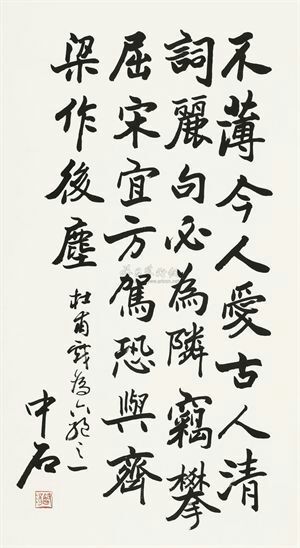 不薄今人愛古人清
詞麗句必為隣竊攀
屈宋宜方駕恐與齊
梁作後塵
杜甫戲為六絕之一
中石